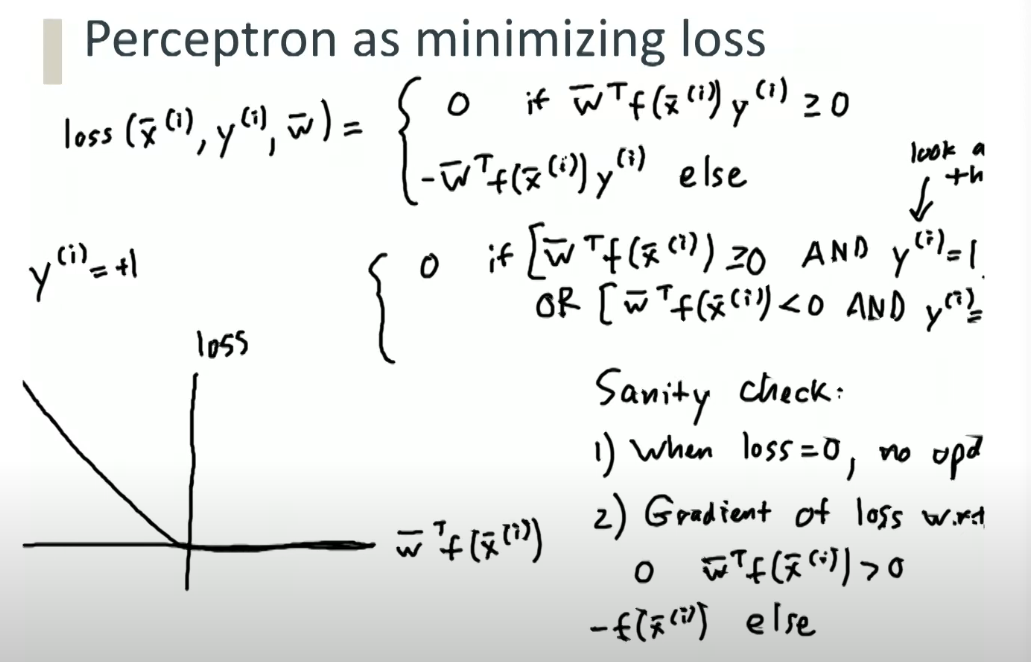 Perceptron as minimizing loss
loss (x̄⁽ⁱ⁾, y⁽ⁱ⁾, w̄) = { 0 if w̄ᵀf(x̄⁽ⁱ⁾) y⁽ⁱ⁾ ≥ 0
-w̄ᵀf(x̄⁽ⁱ⁾) y⁽ⁱ⁾ else
look a
th
y⁽ⁱ⁾ = +1
{ 0 if [w̄ᵀf(x̄⁽ⁱ⁾) ≥0 AND y⁽ⁱ⁾=1
OR [w̄ᵀf(x̄⁽ⁱ⁾) <0 AND y⁽ⁱ⁾=
loss
w̄ᵀf(x̄⁽ⁱ⁾)
Sanity check:
1) When loss=0, no upd
2) Gradient of loss w.r.t
0 w̄ᵀf(x̄⁽ⁱ⁾) >0
-f(x̄⁽ⁱ⁾) else